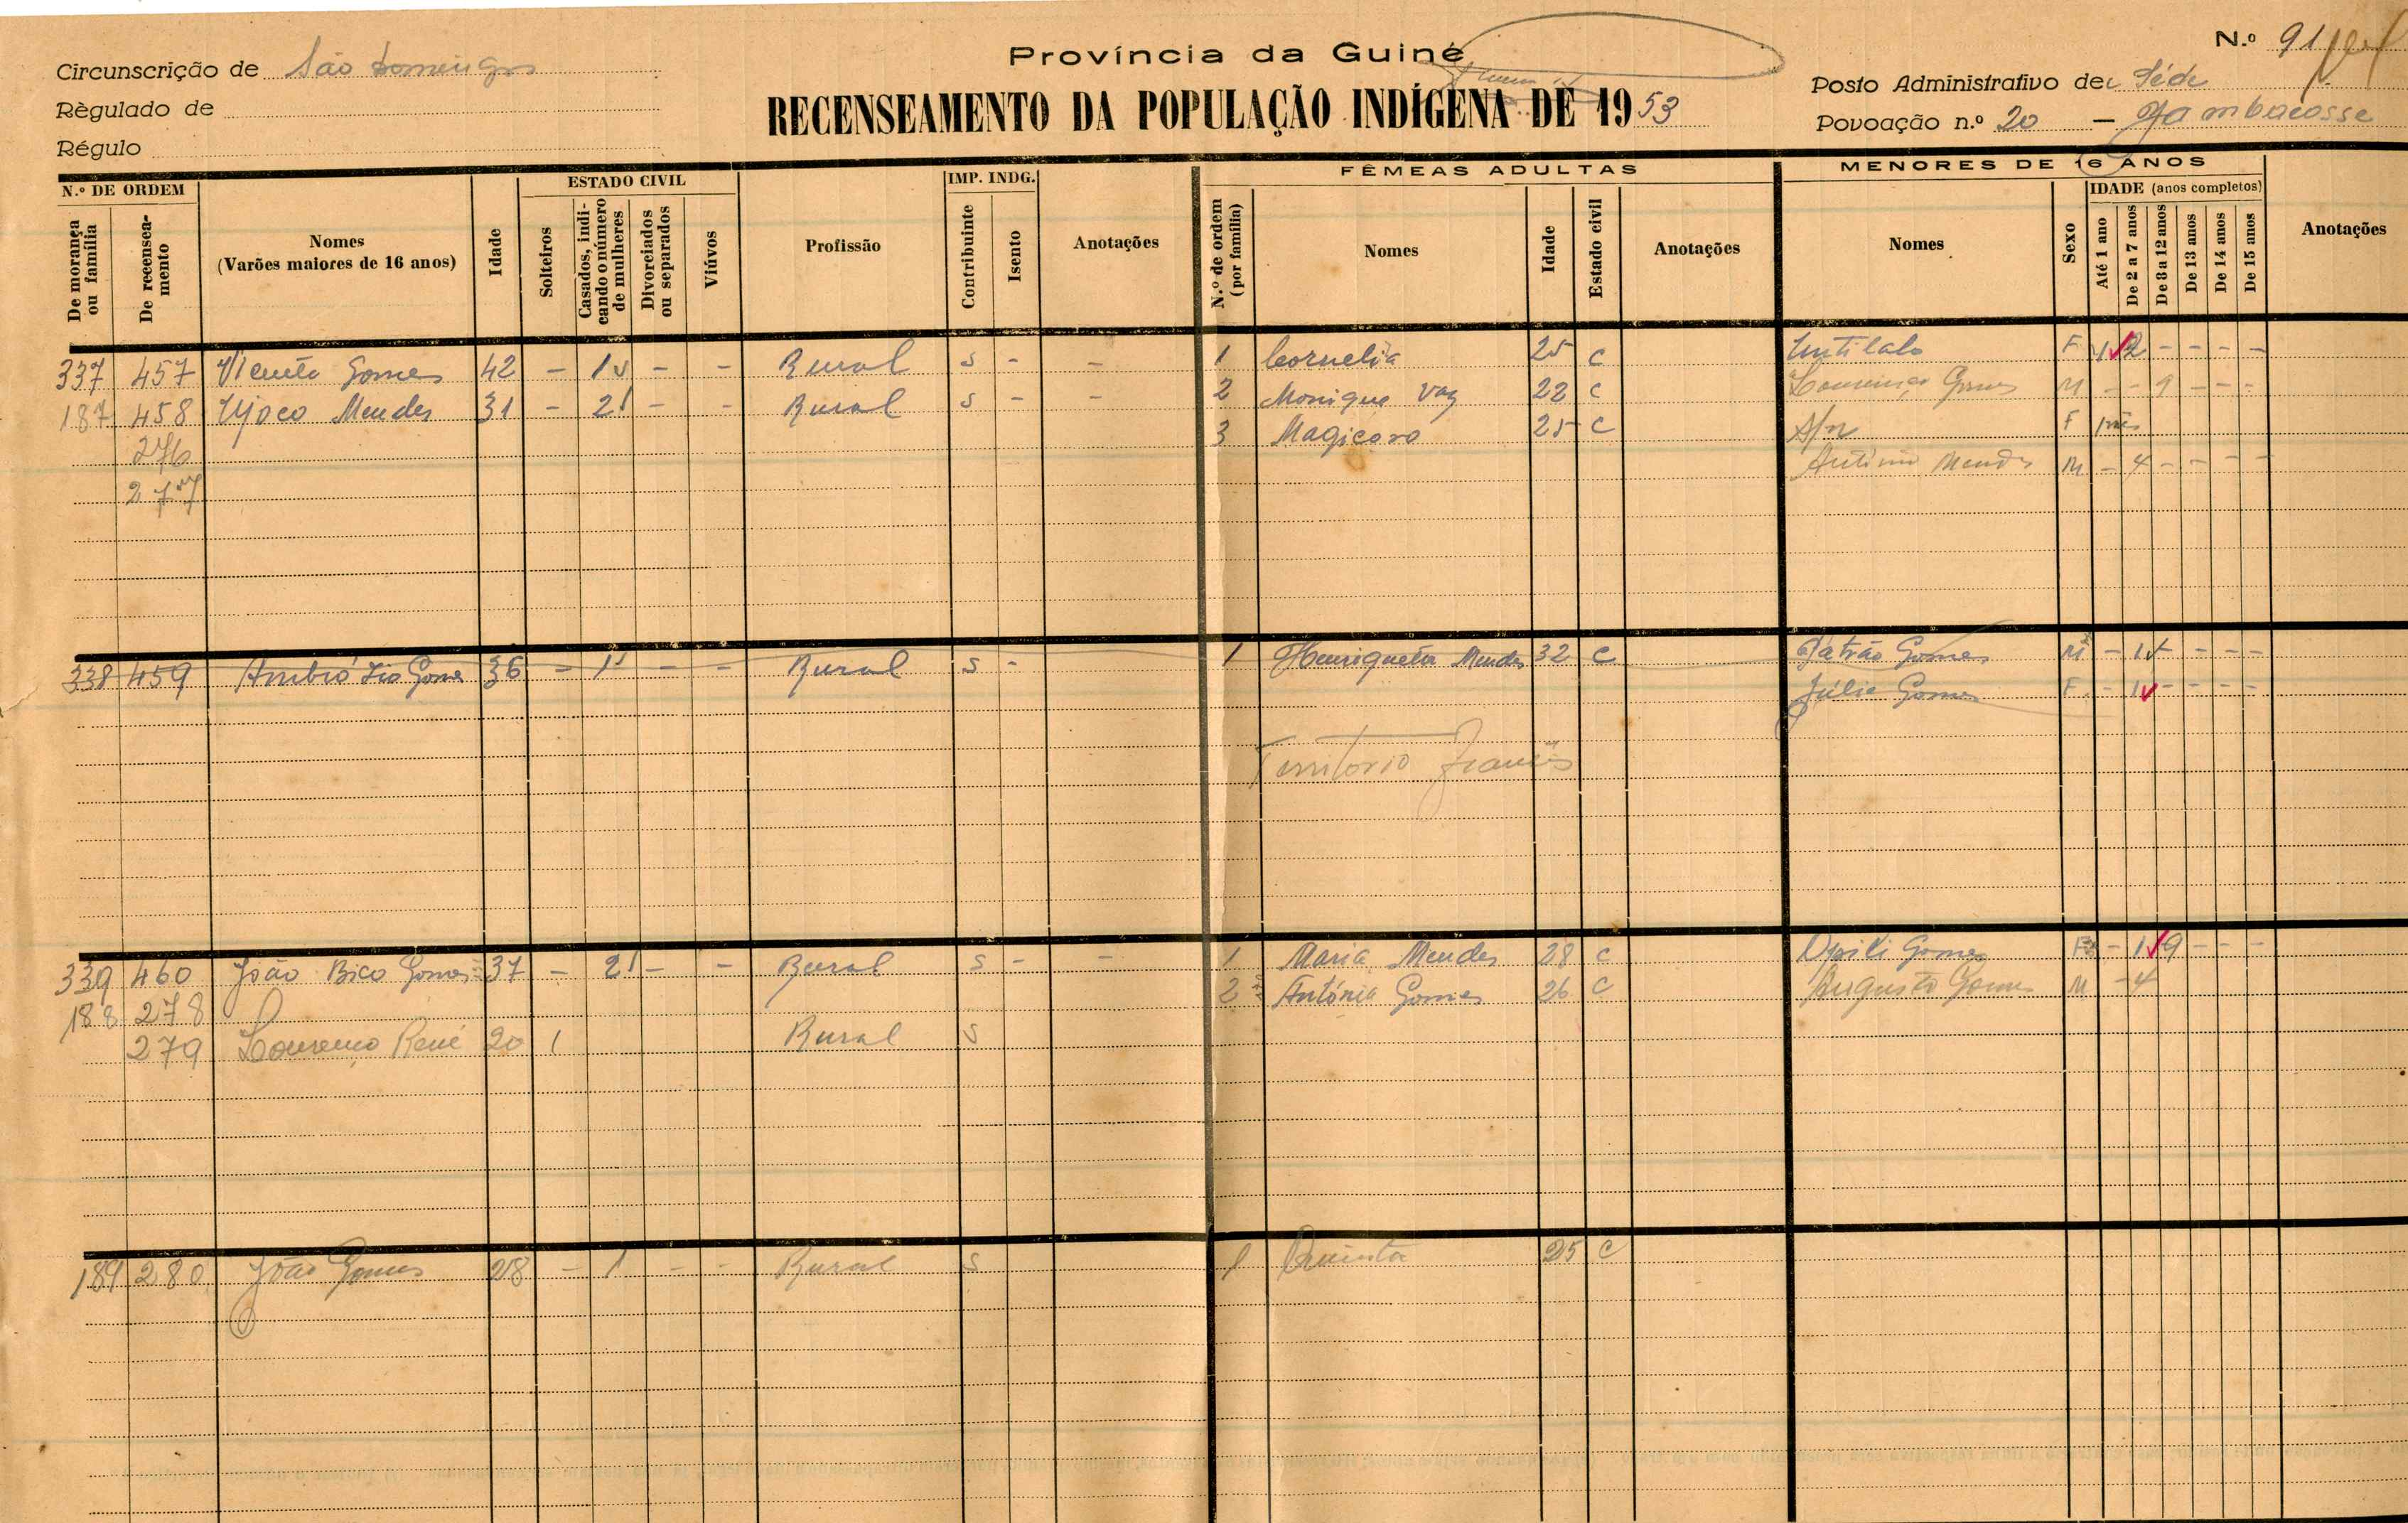 Circunscrição de São Domingos
Règulado de
Régulo
Província da Guiné
RECENSEAMENTO DA POPULAÇÃO INDÍGENA DE 1953
N.º 91
Posto Administrativo de Séde
Povoação n.º 20 — Jambacosse
N.º DE ORDEM
De morança ou família
De recenseamento
Nomes
(Varões maiores de 16 anos)
Idade
ESTADO CIVIL
Solteiros
Casados, indicando o número de mulheres
Divorciados ou separados
Viúvos
Profissão
IMP. INDG.
Contribuinte
Isento
Anotações
FÊMEAS ADULTAS
N.º de ordem (por família)
Nomes
Idade
Estado civil
Anotações
MENORES DE 16 ANOS
Nomes
Sexo
IDADE (anos completos)
Até 1 ano
De 2 a 7 anos
De 8 a 12 anos
De 13 anos
De 14 anos
De 15 anos
Anotações
337 457 Vicente Gomes 42 – 1 – – Rural s – – 1 Cornelia 25 C F 2 – – – –
187 458 Mendes 31 – 2 – – Rural s – – 2 Monique Vaz 22 C Lourenço Gomes M – – 9 – – –
276 3 Magicoro 25 C S/n F 1 mês
277 António Mendes M – 4 – – – –
338 459 Ambrósio Gomes 36 – 1 – – Rural s – 1 Henriqueta Mendes 32 C Patrão Gomes M – 1 – – – –
Júlia Gomes F – 1 – – – –
Territorio Francês
339 460 João Bico Gomes 37 – 2 – – Rural s – – 1 Maria Mendes 28 C Gomes F – 1 9 – – –
188 278 2 António Gomes 26 C Augusto Gomes M – 4
279 Lourenço René 20 1 Rural s
189 280 João Gomes 28 – 1 – – Rural s 1 Quinta 25 C